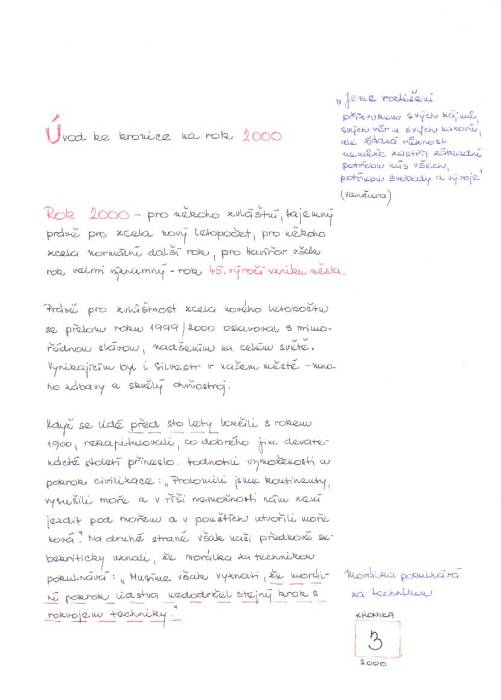 Úvod ke kronice na rok 2000
"Jsme rozlišeni
svých věr a svých názorů,
ale žádná různost
nemůže zastřít základní
potřebu nás všech,
potřebu svobody a vývoje"
(Vančura)
Rok 2000 - pro někoho zvláštní, tajemný
právě pro zcela nový letopočet, pro někoho
zcela normální další rok, pro Havířov však
rok velmi významný - rok 45. výročí vzniku města.
Právě pro zvláštnost zcela nového letopočtu
se přelom roku 1999/2000 oslavoval s mimo-
řádnou slávou, nadšením na celém světě.
Vynikajícím byl i Silvestr v našem městě - mno-
ho zábavy a skvělý ohňostroj.
Když se lidé před sto lety loučili s rokem
1900, rekapitulovali, co dobrého jim devate-
nácté století přineslo. Hodnotili vymoženosti a
pokrok civilizace: "Prolomili jsme kontinenty,
vysušili moře a v říši nemožnosti nám není
jezdit pod mořem a v pouštích utvořili moře
nová." Na druhé straně však naši předkové se-
bekriticky uznali, že morálka za technikou
pokulhává: "Musíme však vyznati, že morál-
ní pokrok lidstva nedodržel stejný krok s
rozvojem techniky."
Morálka pokulhává
za technikou
KRONIKA
3
2000